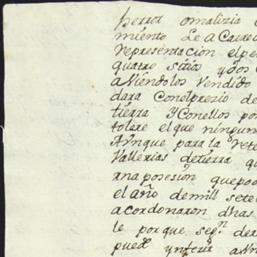 herror omalizia
miento Le a Carre
representación el pe
quatro sitios y dos
aviéndolos vendido
dara Con el prezio de
tierra y Conellos po
tolare el que ningun
Aunque para la rete
Vallerias de tierra q
ana posesión que po
el año de mill sete
acordonaron dhas
le por que seg.n de